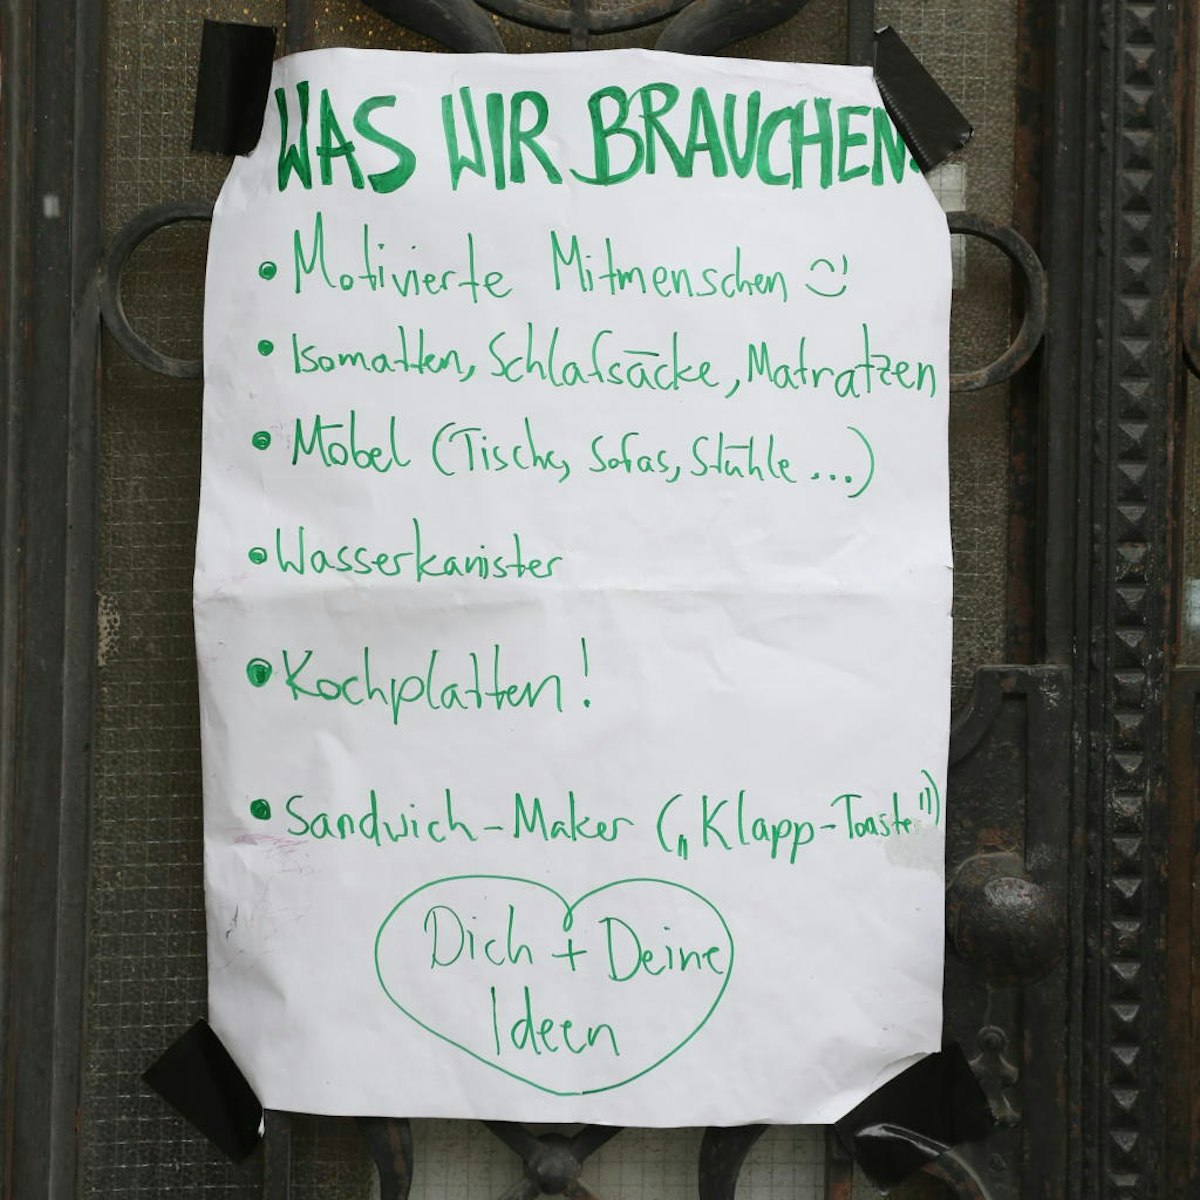 WAS WIR BRAUCHEN:
• Motivierte Mitmenschen :)
• Isomatten, Schlafsäcke, Matratzen
• Möbel (Tische, Sofas, Stühle ...)
• Wasserkanister
• Kochplatten!
• Sandwich-Maker („Klapp-Toaste")
Dich + Deine
Ideen